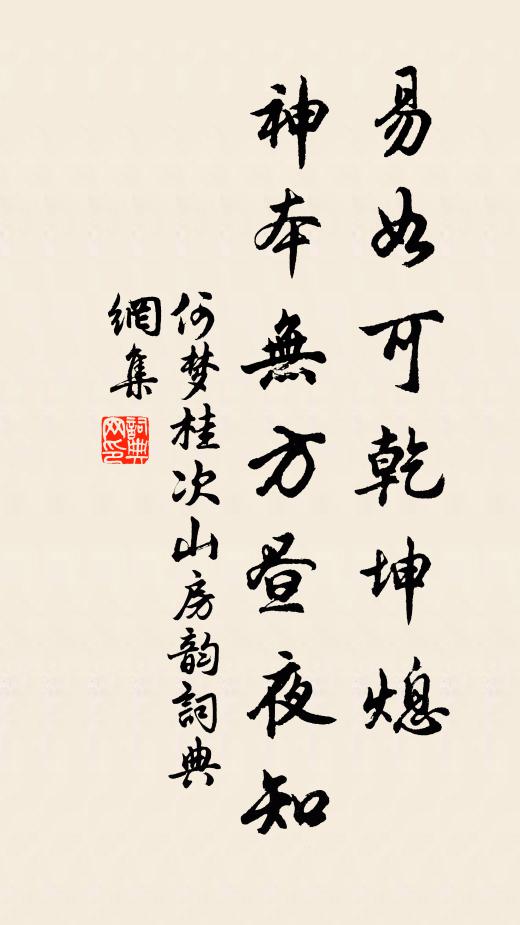 易如可乾坤熄
神本無方昼夜知
何梦桂次山房韵詞典
網集
詞典
网印